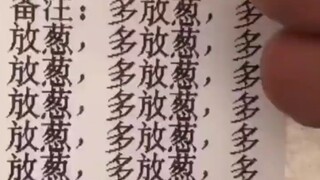 备注：多放葱，多
放葱，多放葱，多
放葱，多放葱，多
放葱，多放葱，多
放葱，多放葱，多
放葱，多放葱，多